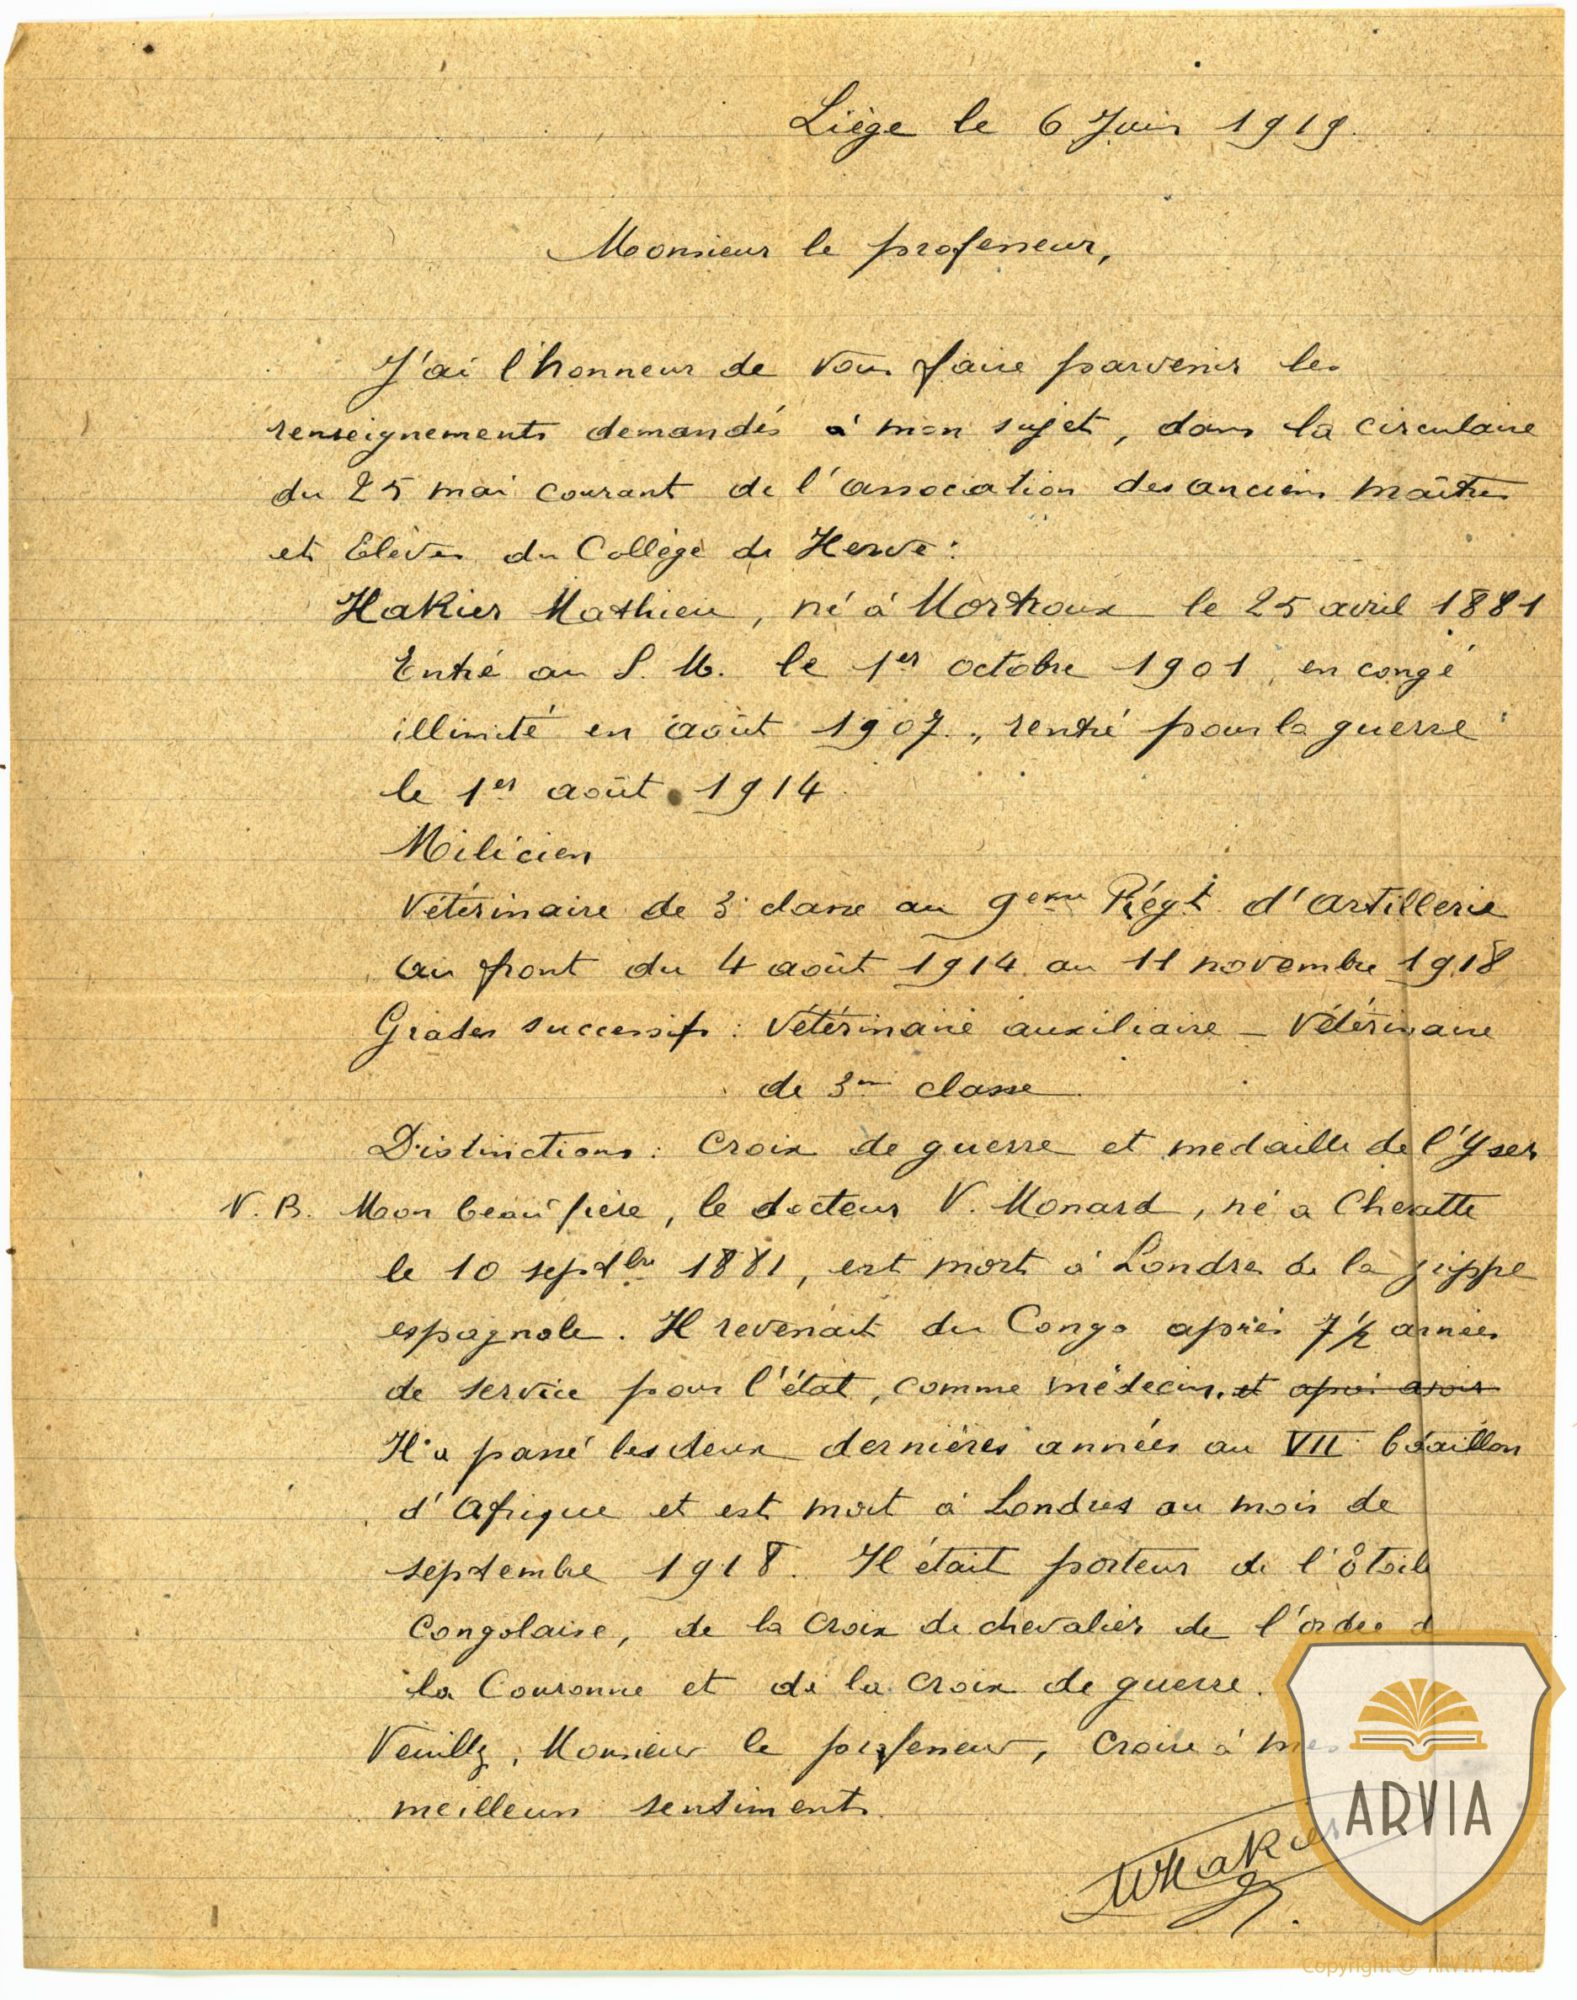 Liège le 6 Juin 1919.
Monsieur le professeur,
J'ai l'honneur de vous faire parvenir les
renseignements demandés à mon sujet, dans la circulaire
du 25 mai courant de l'association des anciens maîtres
et Elèves du Collège de Herve :
Hakier Mathieu, né à Mortroux le 25 avril 1881
Entré au S. M. le 1er octobre 1901, en congé
illimité en août 1907, rentré pour la guerre
le 1er août 1914
Milicien
Vétérinaire de 3e classe au 9eme Régt d'artillerie
Au front du 4 août 1914 au 11 novembre 1918
Grades successifs : Vétérinaire auxiliaire - Vétérinaire
de 3me classe
Distinctions : Croix de guerre et medaille de l'Yser
N. B. Mon beau frère, le docteur V. Monard, né a Cheratte
le 10 septbre 1881, est mort à Londres de la grippe
espagnole. Il revenait du Congo après 7 1/2 années
de service pour l'état, comme médecin. et après avoir
Il a passé les deux dernières années au VII bataillon
d'Afrique et est mort à Londres au mois de
septembre 1918. Il était porteur de l'étoile
Congolaise, de la Croix de chevalier de l'ordre d
la Couronne et de la croix de guerre.
Veuillez, Monsieur le professeur, croire à mes
meilleurs sentiments.
MHakier
ARVIA
Copyright © ARVIA ASBL